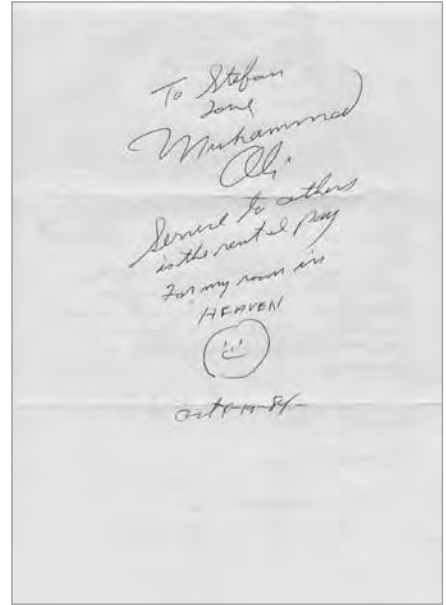 To Stefan
Love
Muhammad
Ali
Service to others
is the rent I pay
For my room in
HEAVEN